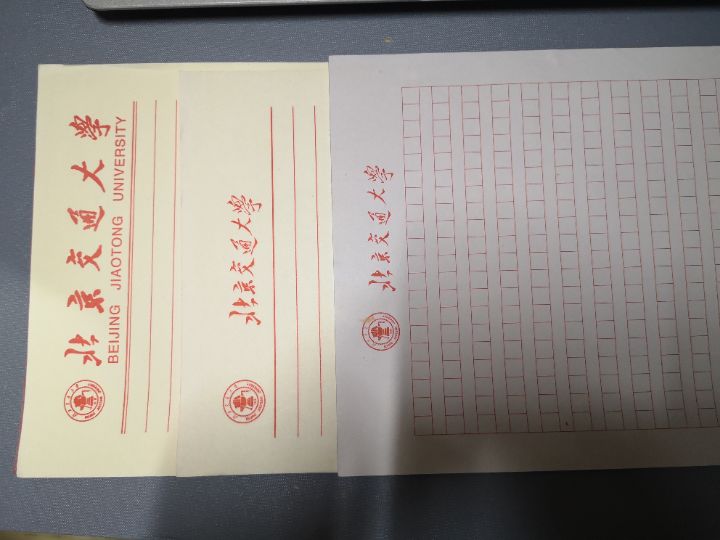 北京交通大学
BEIJING JIAOTONG UNIVERSITY
北京交通大学
北京交通大学